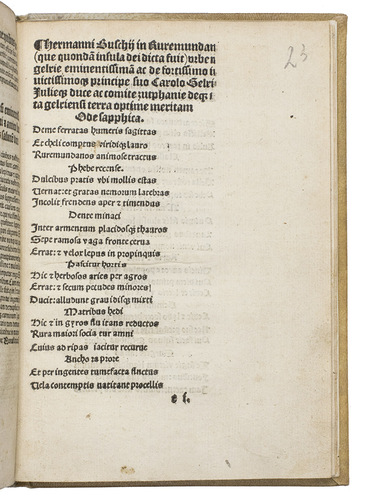 23
Hermanni Buschij in Ruremundan
(que quondā insula dei dicta fuit) vrbe n
gelrie eminentissimā ac de fortissimo i
uictissimoq; principe suo Carolo Gelri
Julieq; duce ac comite zutphanie deq; i
ta gelriensi terra optime meritam
Ode sapphica.
Deme ferratas humeris sagittas
Et cheli compta viridiq; lauro
Ruremundanos animose tractus
Phebe recense.
Dulcibus pratis vbi mollis estas
Vernat: et gratas nemorum latebras
Incolit frendens aper et timendus
Dente minaci
Inter armentum placidosq; thauros
Sepe ramosa vaga fronte cerua
Errat: et velox lepus in propinquis
Pascitur hortis
Hic et herbosos aries per agros
Errat: et secum pecudes minores
Ducit: alludunt grauidisq; mixti
Matribus hedi
Hic et in gyros flu itans reductos
Rura maiori socia tur amni
Cuius ad ripas iacitur recurue
Anchora prore
Et per ingentes tumefacta fluctus
Vela contemptis natitant procellis
e i.